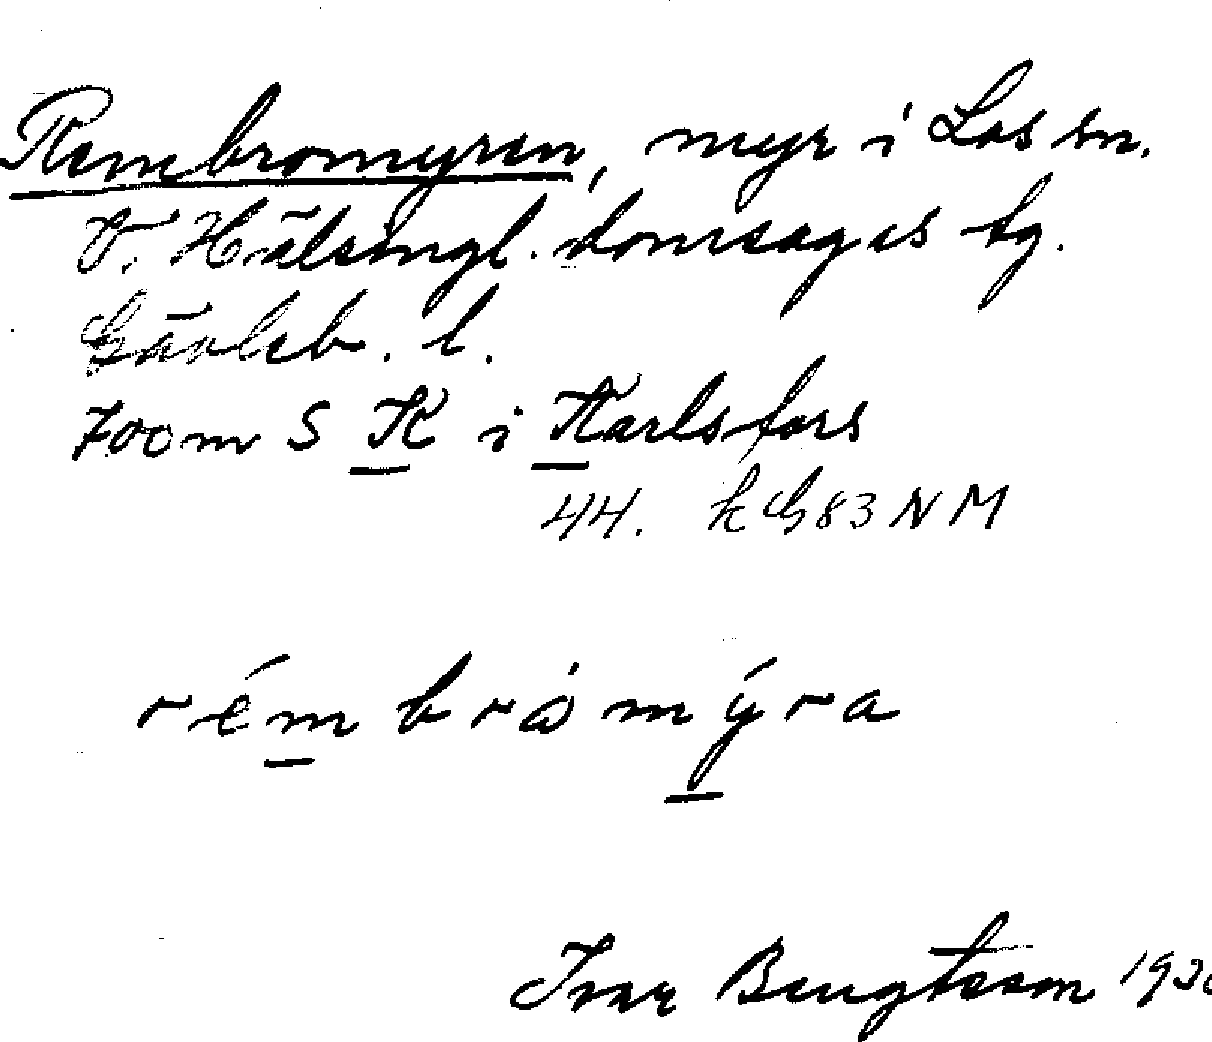 Rembromyren, myr i Los sn.
V. Hälsingl. domsagas tg.
Gävleb. l.
700 m S K i Karlsfors
44. k G 83 NM
rémbråmýra
Ivar Bengtsson